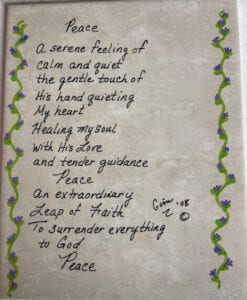 Peace
A serene feeling of
calm and quiet
the gentle touch of
His hand quieting
My heart
Healing my soul
With His Love
and tender guidance
Peace
An extraordinary
Leap of Faith
'08
©
To surrender everything
to God
Peace